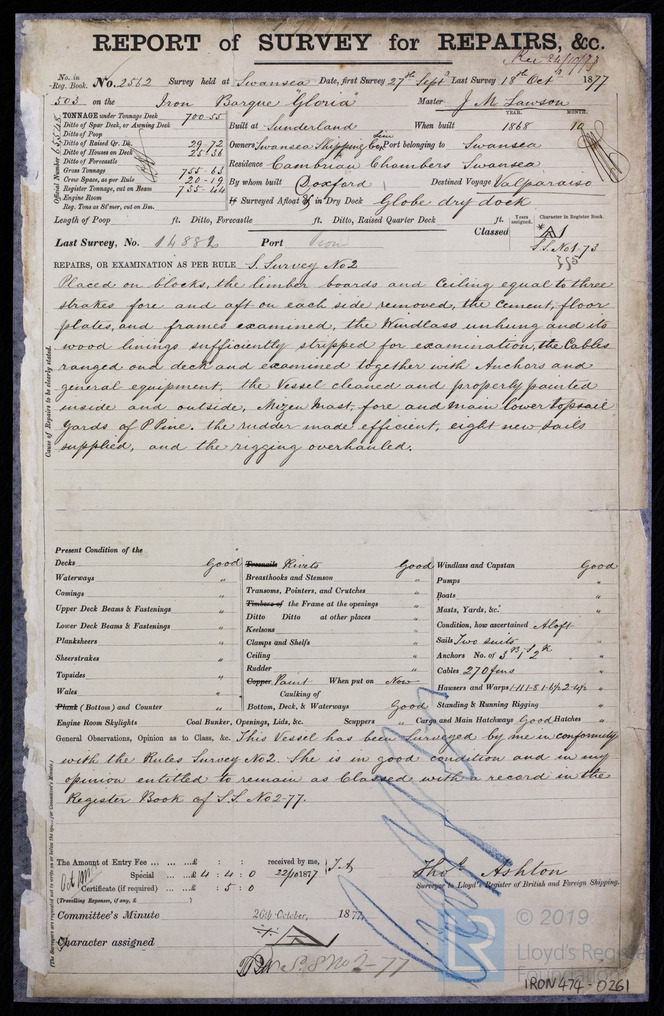 REPORT of SURVEY for REPAIRS, &c.
No. in Reg. Book. No. 2562 Survey held at Swansea Date, first Survey 27th Sept Last Survey 18th Oct 1877
503 on the Iron Barque "Gloria" Master J M Lawson
TONNAGE under Tonnage Deck 700-55
Ditto of Spar Deck, or Awning Deck
Ditto of Poop
Ditto of Raised Qr. Dk. 29-72
Ditto of Houses on Deck 25-36
Ditto of Forecastle
Gross Tonnage 755-63
Crew Space, as per Rule 20-19
Register Tonnage, cut on Beam 735-44
Engine Room
Reg. Tons as St'mer, cut on Bm.
Official Number
YEAR. MONTH.
Built at Sunderland When built 1868 10
Owners Swansea Shipping Co Lim Port belonging to Swansea
Residence Cambrian Chambers Swansea
By whom built Doxford Destined Voyage Valparaiso
If Surveyed Afloat or in Dry Dock Globe dry dock
Length of Poop ft. Ditto, Forecastle ft. Ditto, Raised Quarter Deck ft.
Years assigned. Character in Register Book.
Classed A1
S.S. No 1-73
Last Survey, No. 14882 Port
REPAIRS, OR EXAMINATION AS PER RULE S. Survey No 2
Cause of Repairs to be clearly stated.
Placed on blocks, the limber boards and Ceiling equal to three
strakes fore and aft on each side removed, the Cement, floor
plates, and frames examined, the Windlass unhung and its
wood linings sufficiently stripped for examination, the Cables
ranged on deck and examined together with Anchors and
general equipment, the Vessel cleaned and properly painted
inside and outside, Mizen Mast, fore and main lower topsail
Yards of P Pine. the rudder made efficient, eight new sails
supplied, and the rigging overhauled.
Present Condition of the
Decks Good
Waterways "
Comings "
Upper Deck Beams & Fastenings "
Lower Deck Beams & Fastenings "
Planksheers "
Sheerstrakes "
Topsides "
Wales "
Plank (Bottom) and Counter "
Treenails Rivets Good
Breasthooks and Stemson "
Transoms, Pointers, and Crutches "
Timbers of the Frame at the openings "
Ditto Ditto at other places "
Keelsons "
Clamps and Shelfs "
Ceiling "
Rudder "
Copper Paint When put on Now
Caulking of
Bottom, Deck, & Waterways Good
Windlass and Capstan Good
Pumps "
Boats "
Masts, Yards, &c. "
Condition, how ascertained Aloft
Sails Two suits
Anchors No. of "
Cables 270 fms "
Hawsers and Warps "
Standing & Running Rigging "
Engine Room Skylights Coal Bunker, Openings, Lids, &c. Scuppers " Cargo and Main Hatchways Good Hatches "
General Observations, Opinion as to Class, &c. This Vessel has been Surveyed by me in conformity
with the Rules Survey No 2. She is in good condition and in my
opinion entitled to remain as Classed with a record in the
Register Book of S.S. No 2-77.
The Amount of Entry Fee ... £ : : received by me,
Special ... £ 4 : 4 : 0 22/10 1877
Certificate (if required) ... : 5 : 0
(Travelling Expenses, if any, £ )
Thos. Ashton
Surveyor to Lloyd's Register of British and Foreign Shipping.
Committee's Minute 26th October, 1877
Character assigned A
S.S No 2-77
© 2019
LR
Lloyd's Register
Foundation
IRON474-0261